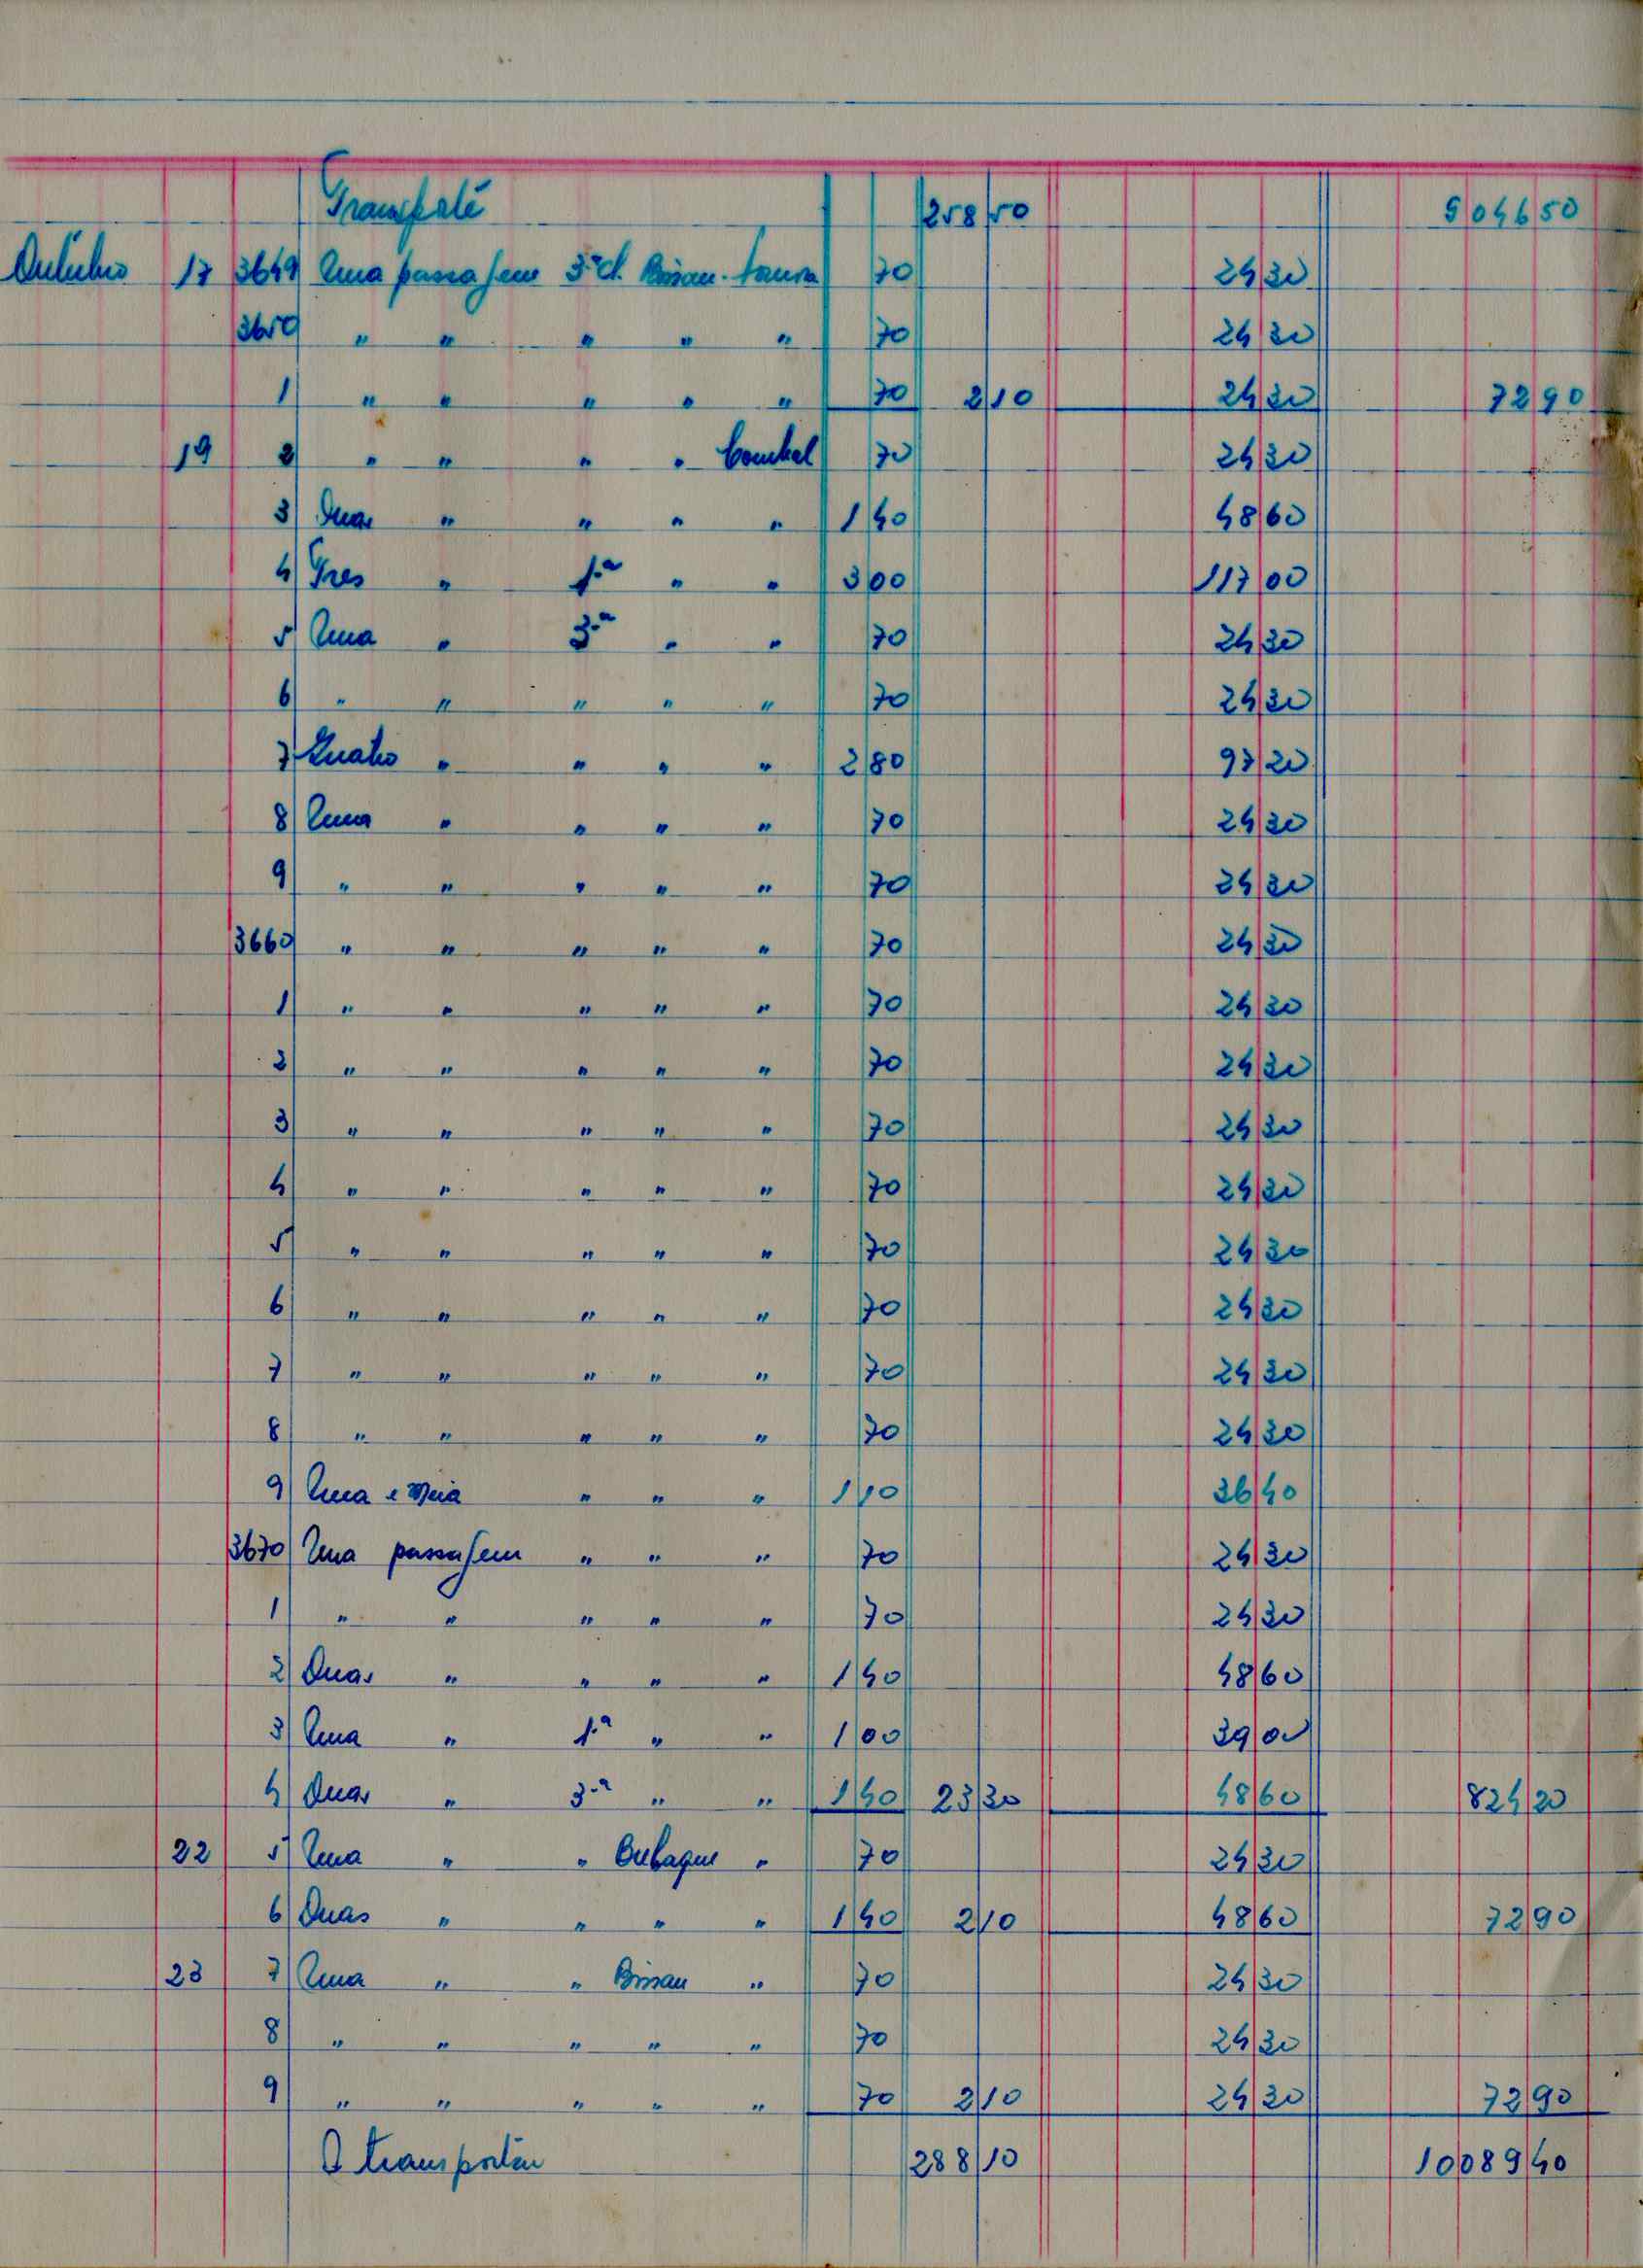 Transporte 258 50 9046 50
Outubro 17 3649 Uma passagem 3ª cl. Bissau - 70 24 30
3650 " " " " " 70 24 30
1 " " " " " 70 2 10 24 30 72 90
19 2 " " " " 70 24 30
3 Duas " " " " 1 40 48 60
4 Tres " 1ª " " 3 00 117 00
5 Uma " 3ª " " 70 24 30
6 " " " " " 70 24 30
7 Quatro " " " " 2 80 97 20
8 Uma " " " " 70 24 30
9 " " " " " 70 24 30
3660 " " " " " 70 24 30
1 " " " " " 70 24 30
2 " " " " " 70 24 30
3 " " " " " 70 24 30
4 " " " " " 70 24 30
5 " " " " " 70 24 30
6 " " " " " 70 24 30
7 " " " " " 70 24 30
8 " " " " " 70 24 30
9 Uma e Meia " " " 1 10 36 40
3670 Uma passagem " " " 70 24 30
1 " " " " " 70 24 30
2 Duas " " " " 1 40 48 60
3 Uma " 1ª " " 1 00 39 00
4 Duas " 3ª " " 1 40 23 30 48 60 824 20
22 5 Uma " " Bubaque " 70 24 30
6 Duas " " " " 1 40 2 10 48 60 72 90
23 7 Uma " " Bissau " 70 24 30
8 " " " " " 70 24 30
9 " " " " " 70 2 10 24 30 72 90
A transportar 288 10 10089 40